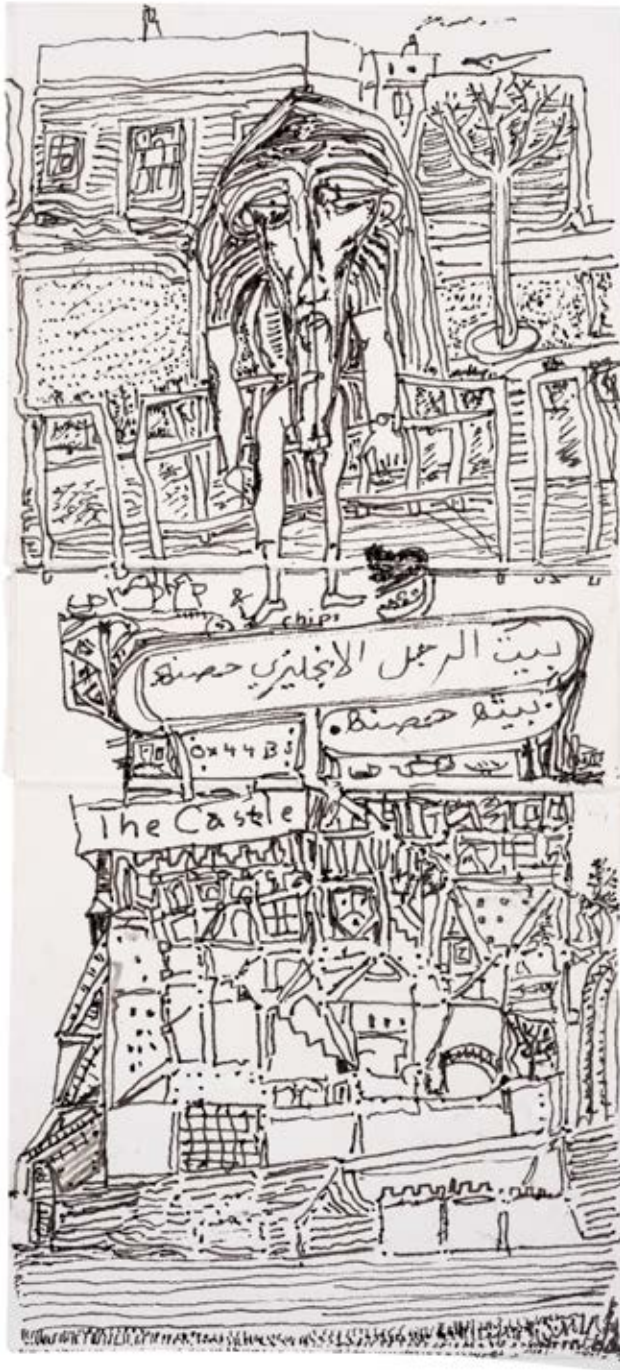 & chips
بيت الرجل الانجليزي حصنه
بيته حصنه
Ox44BS
The Castle